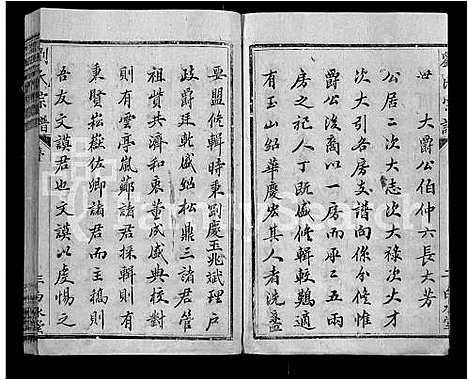 世 大爵公伯仲六長大芳
公居二次大志次大祿次大才
次大引各房支譜向係分修惟
爵公後裔以一房而承二五兩
房之祀人丁既盛修輯較難適
有玉山紹華慶宏其人者洗盞
要盟倏輯時東劉慶玉兆斌理戶
政爵廷乾盛紹松鼎三諸君管
祖貲共濟和衷董成盛典校對
則有雲亭嵐薌諸君採輯則有
秉賢崧嶽佐卿諸君而主稿則
吾友文謨君也文謨以虔惕之
劉氏宗譜